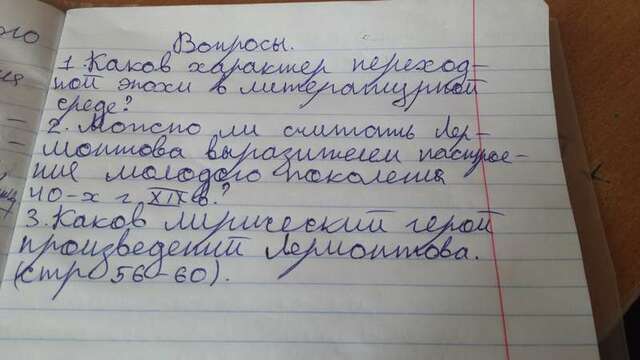 Вопросы.
1. Каков характер переход-
ной эпохи в литературной
среде?
2. Можно ли считать Лер-
монтова выразителем настрое-
ние молодого поколения
40-х г XIX в.?
3. Каков лирический герой
произведений Лермонтова.
(стр 56-60).